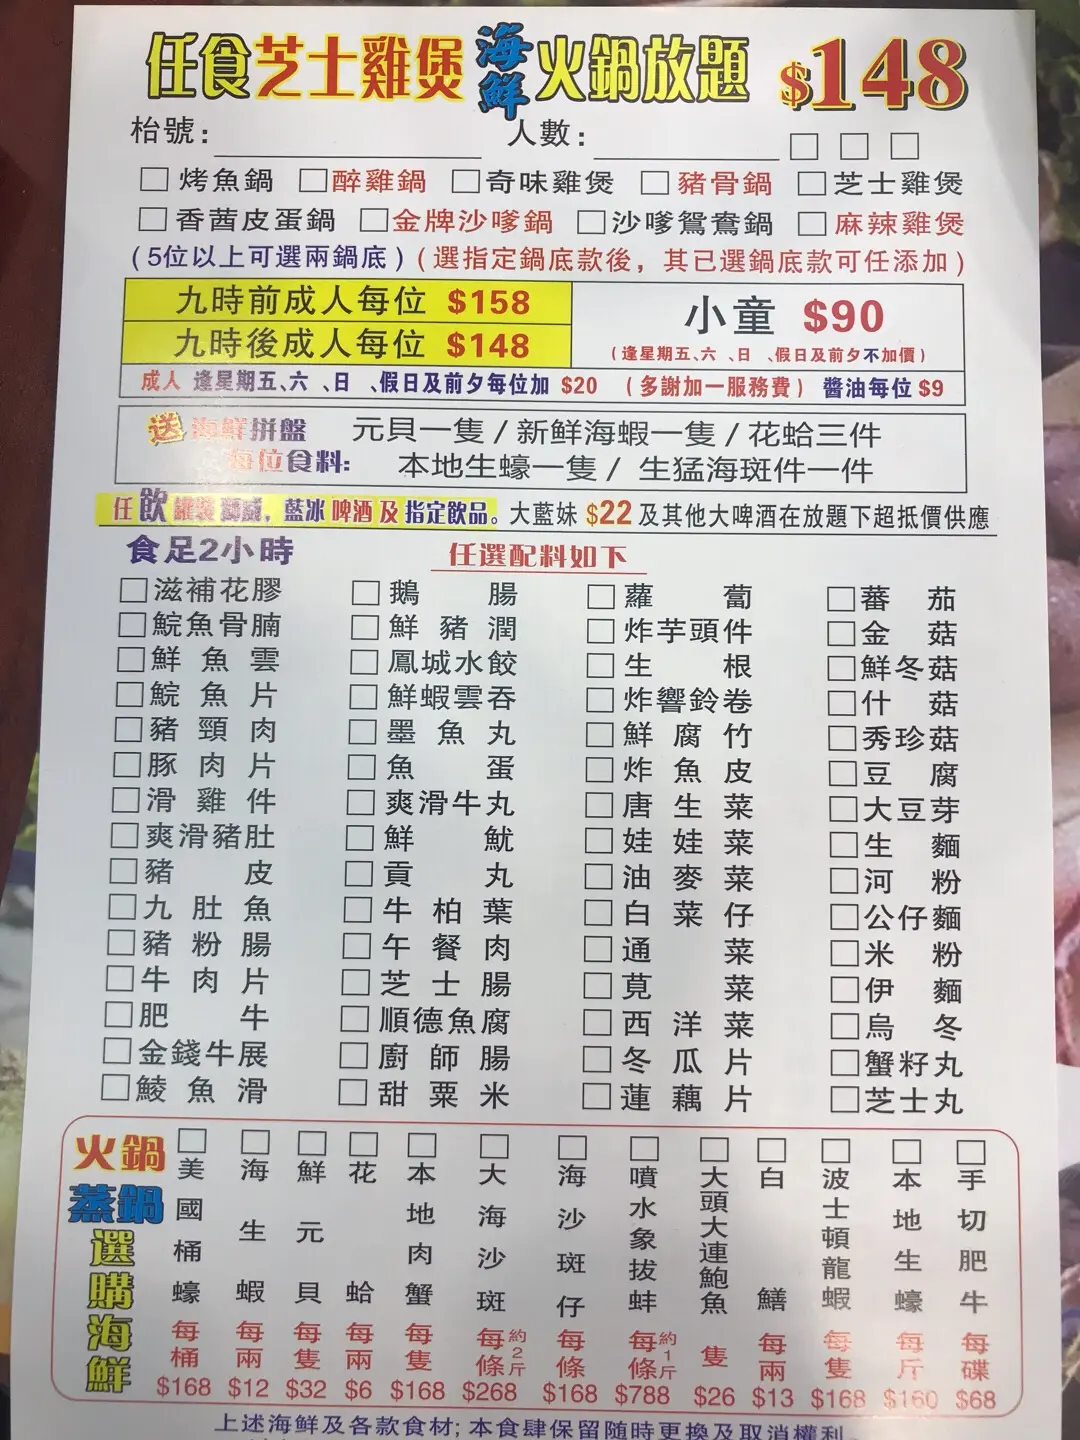 任食芝士雞煲海鮮火鍋放題 $148
枱號: 人數:
烤魚鍋 醉雞鍋 奇味雞煲 豬骨鍋 芝士雞煲
香茜皮蛋鍋 金牌沙嗲鍋 沙嗲鴛鴦鍋 麻辣雞煲
(5位以上可選兩鍋底)(選指定鍋底款後，其已選鍋底款可任添加)
九時前成人每位 $158
九時後成人每位 $148
小童 $90
(逢星期五、六、日、假日及前夕不加價)
成人 逢星期五、六、日、假日及前夕每位加 $20 (多謝加一服務費) 醬油每位 $9
送海鮮拼盤 元貝一隻/新鮮海蝦一隻/花蛤三件
每位食料: 本地生蠔一隻/生猛海斑件一件
任飲罐裝獅威，藍冰啤酒及指定飲品。大藍妹 $22 及其他大啤酒在放題下超抵價供應
食足2小時 任選配料如下
滋補花膠 鵝腸 蘿蔔 蕃茄
鯇魚骨腩 鮮豬潤 炸芋頭件 金菇
鮮魚雲 鳳城水餃 生根 鮮冬菇
鯇魚片 鮮蝦雲吞 炸響鈴卷 什菇
豬頸肉 墨魚丸 鮮腐竹 秀珍菇
豚肉片 魚蛋 炸魚皮 豆腐
滑雞件 爽滑牛丸 唐生菜 大豆芽
爽滑豬肚 鮮魷 娃娃菜 生麵
豬皮 貢丸 油麥菜 河粉
九肚魚 牛柏葉 白菜仔 公仔麵
豬粉腸 午餐肉 通菜 米粉
牛肉片 芝士腸 莧菜 伊麵
肥牛 順德魚腐 西洋菜 烏冬
金錢牛展 廚師腸 冬瓜片 蟹籽丸
鯪魚滑 甜粟米 蓮藕片 芝士丸
火鍋蒸鍋選購海鮮
美國桶蠔 每桶 $168
海生蝦 每兩 $12
鮮元貝 每隻 $32
花蛤 每兩 $6
本地肉蟹 每隻 $168
大海沙斑 每條約2斤 $268
海沙斑仔 每條 $168
噴水象拔蚌 每條約1斤 $788
大頭大連鮑魚 隻 $26
白鱔 每兩 $13
波士頓龍蝦 每隻 $168
本地生蠔 每斤 $160
手切肥牛 每碟 $68
上述海鮮及各款食材;本食肆保留隨時更換及取消權利。